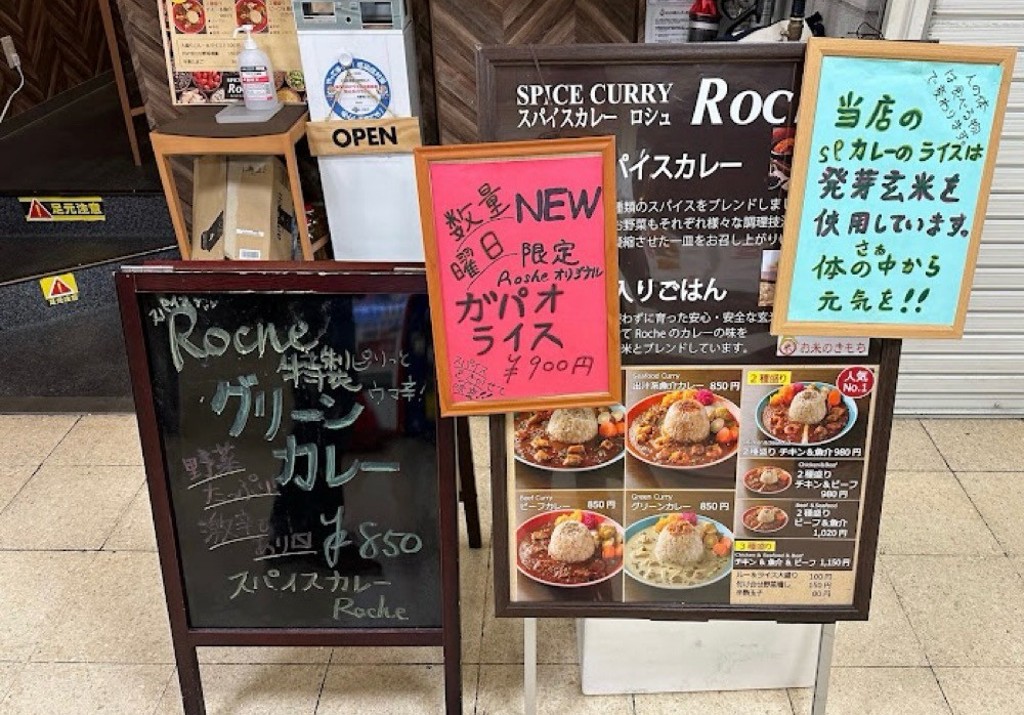 OPEN
足元注意
足元注意
SPICE CURRY
スパイスカレー ロシュ
Roc
パイスカレー
種類のスパイスをブレンドしまし
お野菜もそれぞれ様々な調理技法
凝縮させた一皿をお召し上がり
入りごはん
わずに育った安心・安全な玄
て Roche のカレーの味を
米とブレンドしています。
お米のきもち
当店の
カレーのライスは
発芽玄米を
使用しています。
体の中から
さぁ
元気を!!
数量
曜日
限定
NEW
Roshe オリジナル
ガパオ
ライス
¥900円
Roche
特製
ピリっと
ウマ辛!
グリーン
カレー
野菜
たっぷり
激辛
あり
¥850
スパイスカレー
Roche
Seafood Curry
出汁系魚介カレー 850円
2種盛り
人気
No.1
2種盛り チキン&魚介 980円
Chicken&Beef
2種盛り
チキン&ビーフ
980円
Beef & Seafood
2種盛り
ビーフ&魚介
1,020円
Beef Curry
ビーフカレー 850円
Green Curry
グリーンカレー 850円
3種盛り
Chicken & Seafood & Beef
チキン & 魚介 & ビーフ 1,150円
ルー&ライス大盛り 100円
付け合せ野菜増し 150円